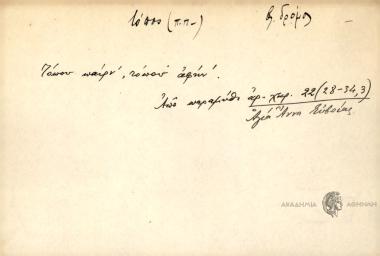 τόπος (π.π.-) βλ. δρόμος
Τόπου παίρν', τόπου ἀφήν'.
Ἀπὸ παραμύθι ἀρ. χφ. 22 (28-34, 3)
Ἁγία Ἄννα Εὐβοίας.
ΑΚΑΔΗΜΙΑ ΑΘΗΝΩΝ